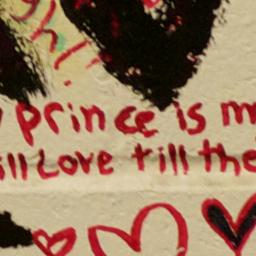 prince is m
ill Love till the